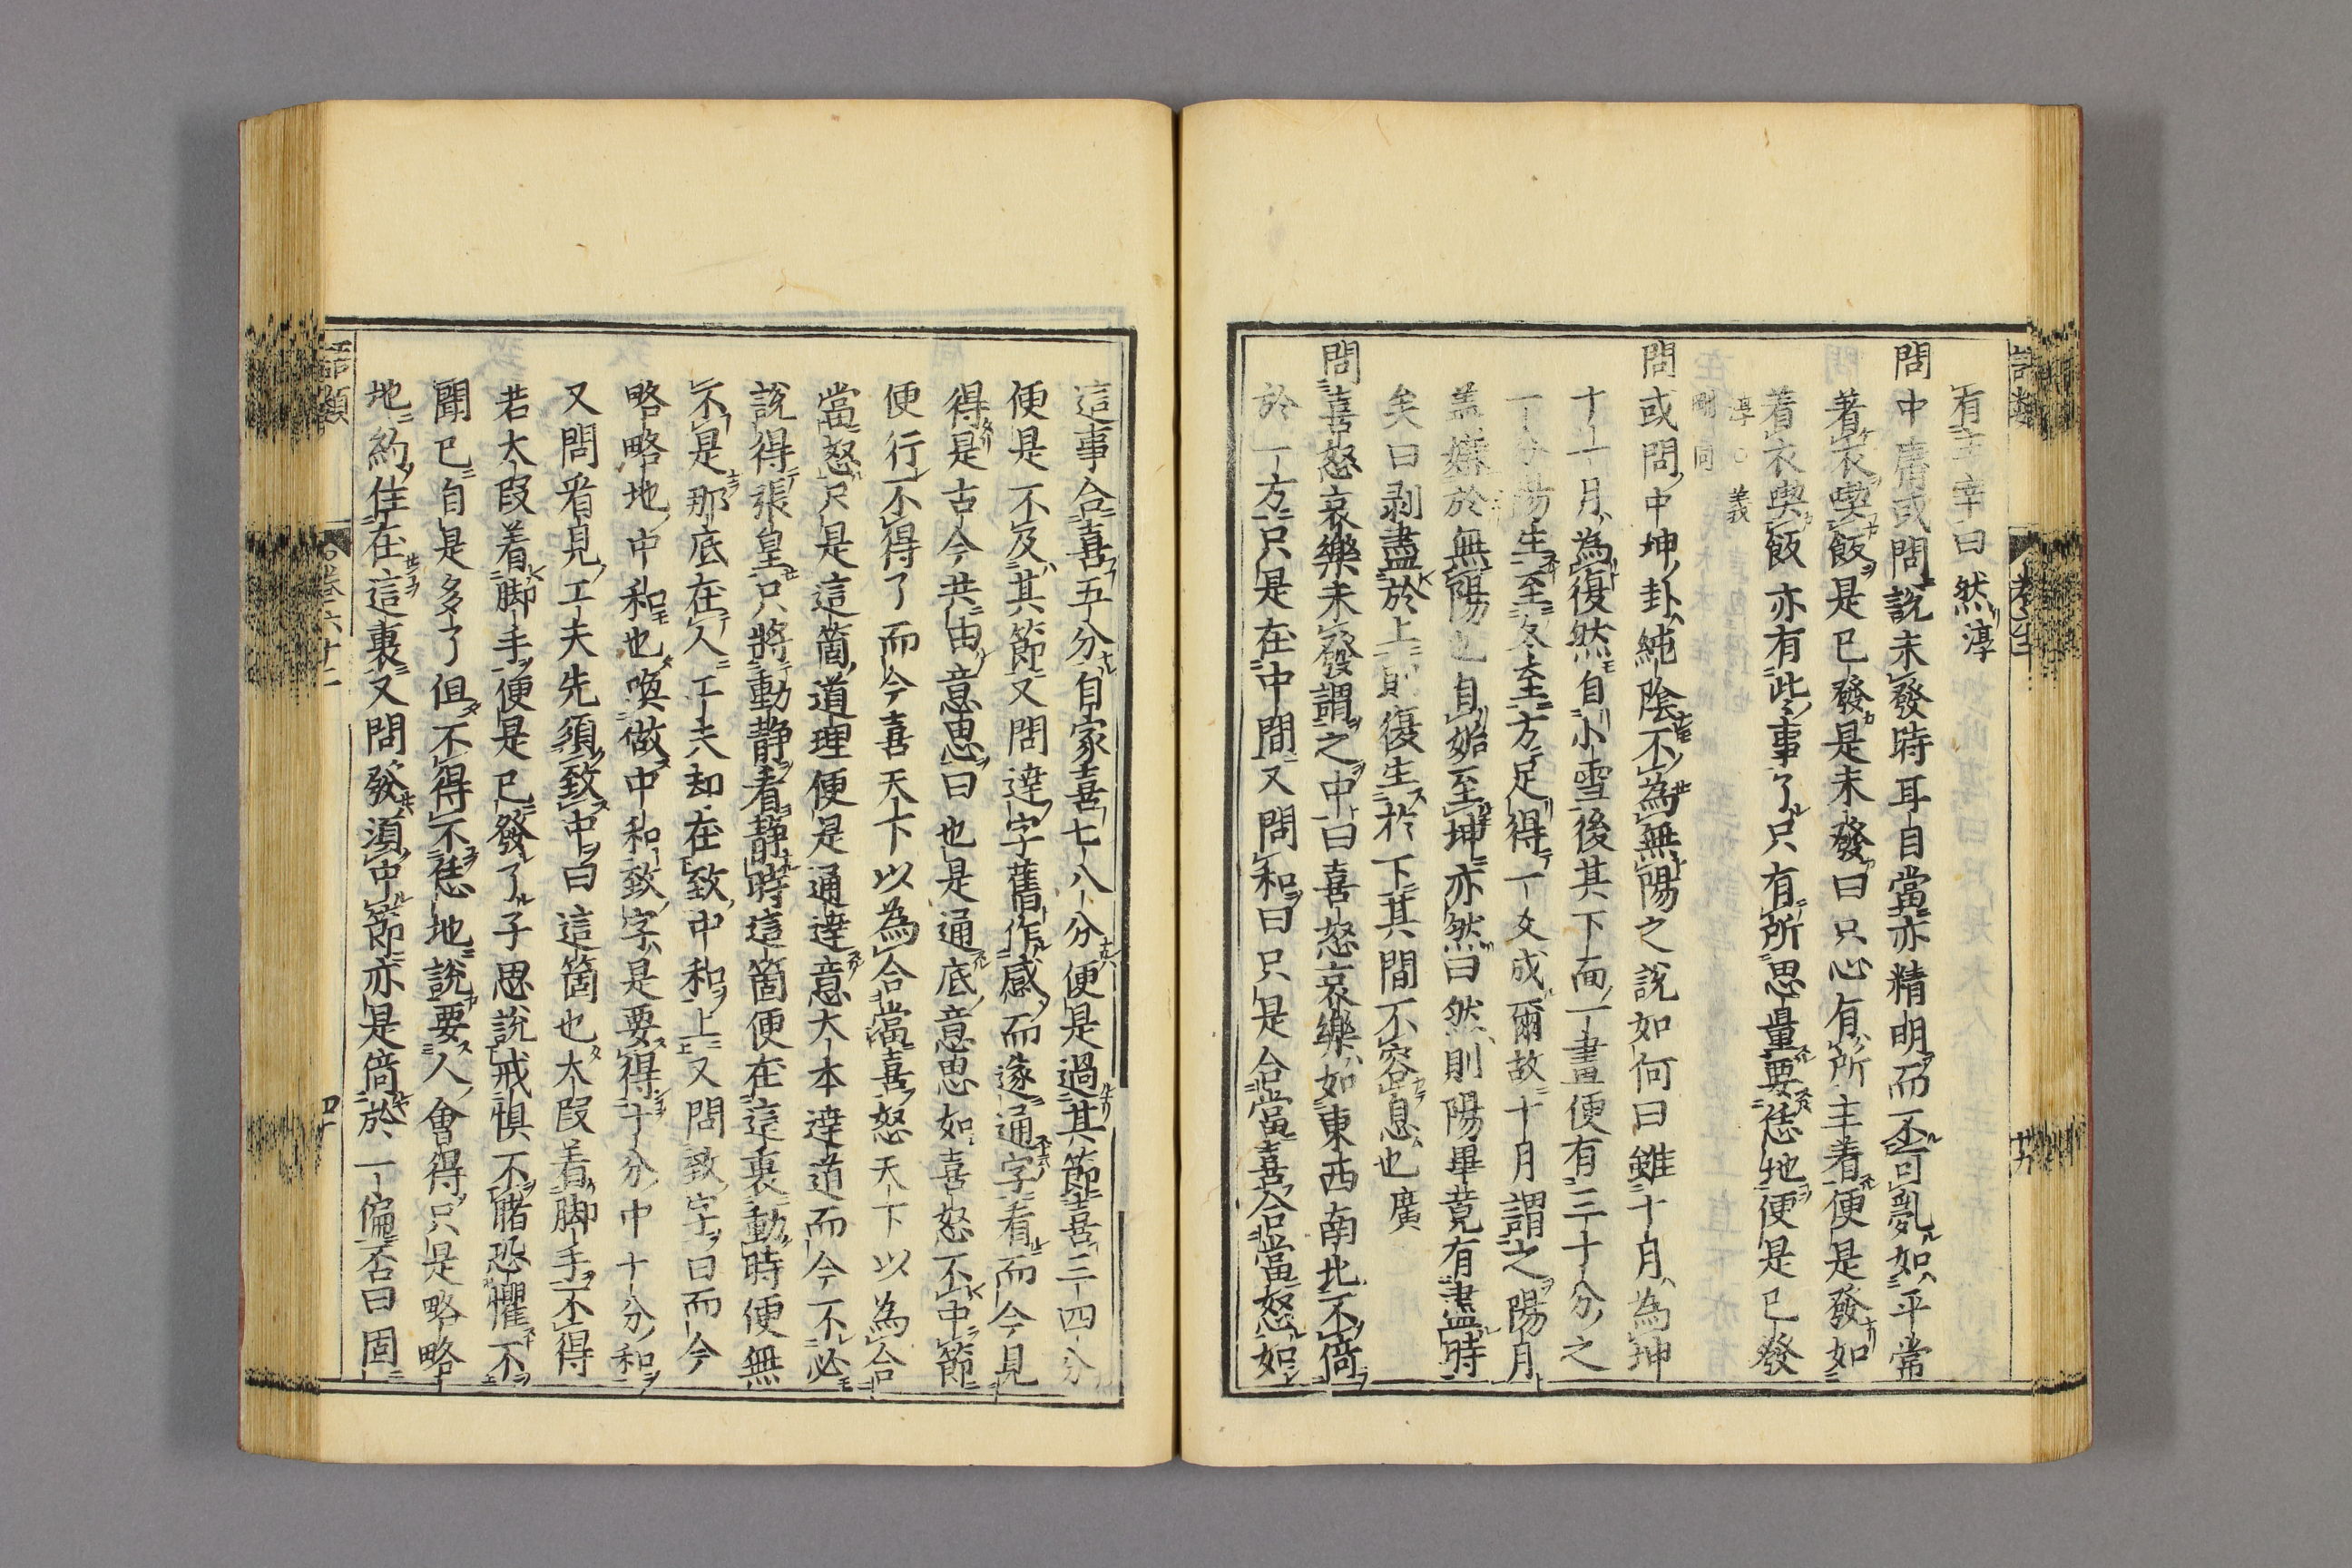 有主宰曰然淳
問中庸或問說未發時耳目當亦精明而不可亂如平常
著衣喫飯是已發是未發曰只心有所主着便是發如
着衣喫飯亦有些事了只有所思量要恁地便是已發
淳○義
剛同
問或問中坤卦純陰不為無陽之說如何曰雖十月為坤
十一月為復然自小雪後其下面一畫便有三十分之
一分陽生至冬至方足得一爻成爾故十月謂之陽月
盖嫌於無陽也自姤至坤亦然曰然則陽畢竟有盡時
矣曰剥盡於上則復生於下其間不容息也廣
問喜怒哀樂未發謂之中曰喜怒哀樂如東西南北不倚
於一方只是在中間又問和曰只是合當喜合當怒如
這事合喜五分自家喜七八分便是過其節喜三四分
便是不及其節又問達字舊作感而遂通字看而今見
得是古今共由意思曰也是通底意思如喜怒不中節
便行不得了而今喜天下以為合當喜怒天下以為合
當怒只是這箇道理便是通達意大本達道而今不必
說得張皇只將動静看静時這箇便在這裏動時便無
不是那底在人工夫却在致中和上又問致字曰而今
略略地中和也喚做中和致字是要得十分中十分和
又問看見工夫先須致中曰這箇也大段着脚手不得
若大段着脚手便是已發了子思說戒慎不睹恐懼不
聞已自是多了但不得不恁地說要人會得只是略略
地約住在這裏又問發須中節亦是倚於一偏否曰固
語類
卷六十二
四十